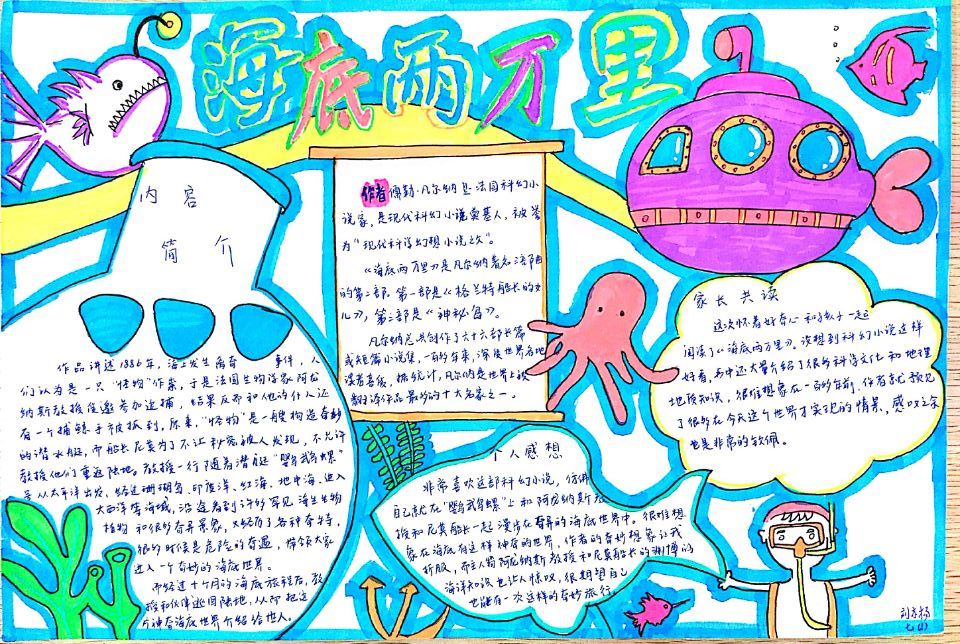 海底两万里
内容
简介
作品讲述1886年，海上发生离奇 事件，人
们认为是一只"怪物"作案，于是法国生物学家阿龙
纳斯教授应邀参加追捕，结果反而和他的仆人还
有一个捕鲸手被抓到。原来，"怪物"是一艘构造奇妙
的潜水艇，而船长尼莫为了不让秘密被人发现，不允许
教授他们重返陆地。教授一行随着潜艇"鹦鹉螺"
号从太平洋出发，经过珊瑚岛、印度洋、红海、地中海，进入
大西洋等海域，沿途看到许多罕见海生生物
植物和很多奇异景象，又经历了各种奇特，
很多时候是危险的奇遇，带领大家
进入一个奇妙的海底世界。
而经过十个月的海底旅程后，教
授和伙伴逃回陆地，从而把这
片神奇海底世界介绍给世人。
作者儒勒·凡尔纳是法国科幻小
说家，是现代科幻小说奠基人，被誉
为"现代科学幻想小说之父"。
《海底两万里》是凡尔纳著名三部曲
的第二部。第一部是《格兰特船长的女
儿》，第三部是《神秘岛》。
凡尔纳总共创作了六十六部长篇
或短篇小说集，一百多年来，深受世界各地
读者喜爱，据统计，凡尔纳是世界上被
翻译作品最多的十大名家之一。
个人感想
非常喜欢这部科幻小说，仿佛
自己就在"鹦鹉螺"上和阿龙纳斯教
授和尼莫船长一起漫步在奇异的海底世界中。很难想
象在海底有这样神奇的世界，作者的奇妙想象让我
折服，而主人翁阿龙纳斯教授和尼莫船长的渊博的
海洋知识也让人惊叹，很期望自己
也能有一次这样的奇妙旅行。
家长共读
这次怀着好奇心和孩子一起
阅读了《海底两万里》，没想到科幻小说这样
好看，书中还大量介绍了很多科学文化和地理
地质知识，很难想象在一百多年前，作者就预见
了很多在今天这个世界才实现的情景，感叹之余
也是非常的钦佩。